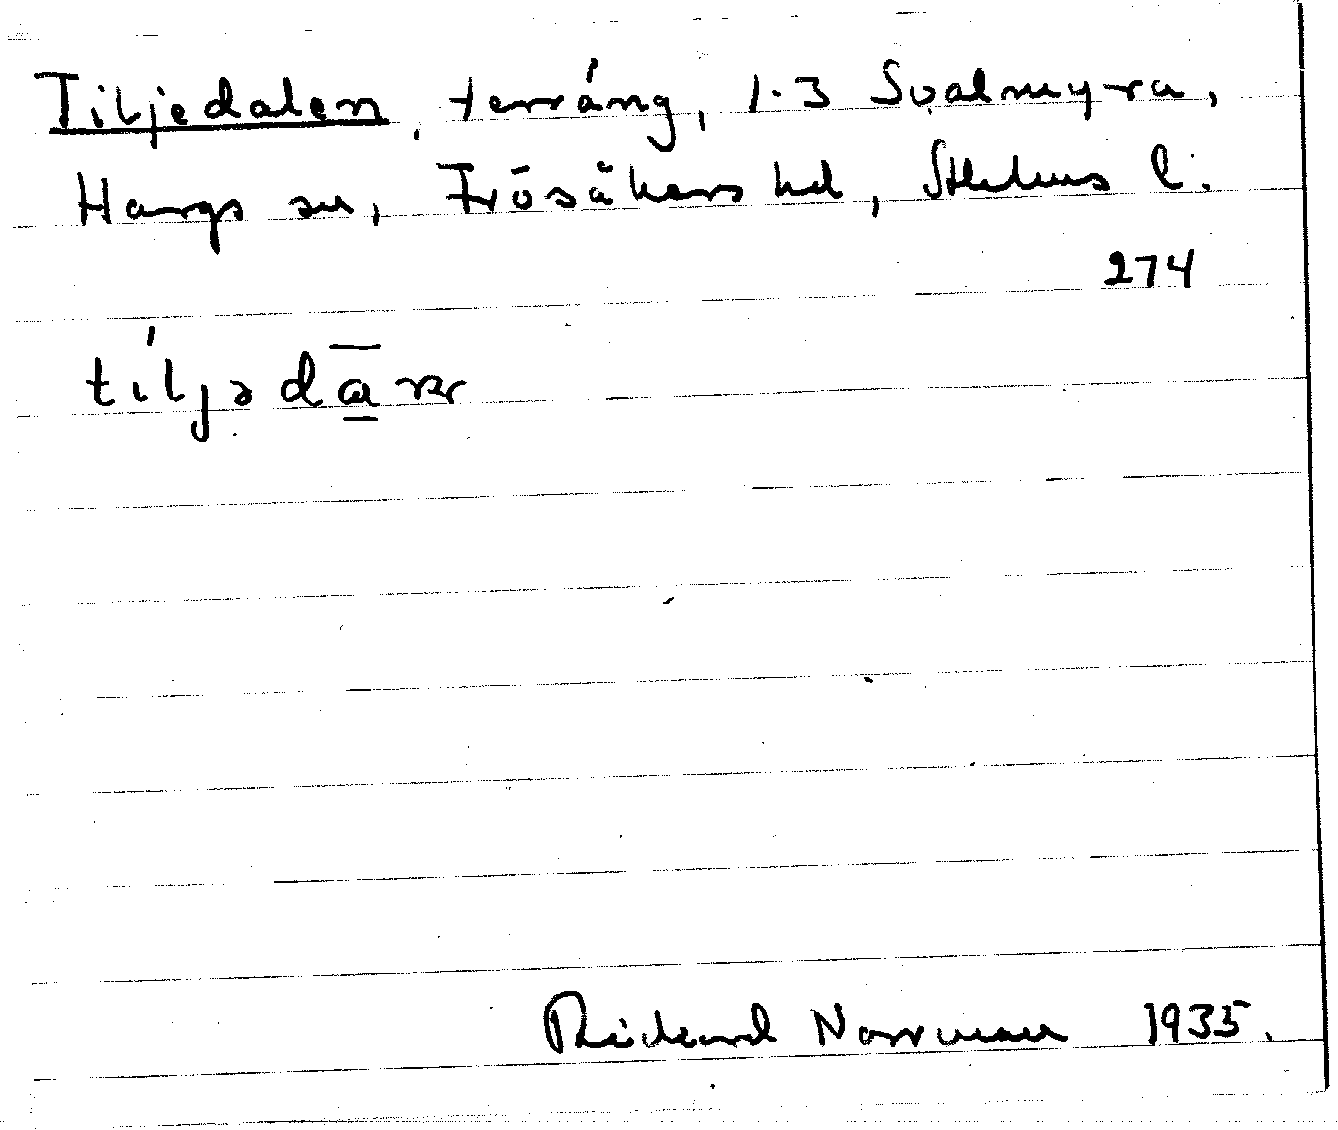 Tiljedalen, terräng, 1.3 Svalmyra,
Hargs sn, Frösåkers hd, Sthlms l.
274
Rickard Norrman 1935.